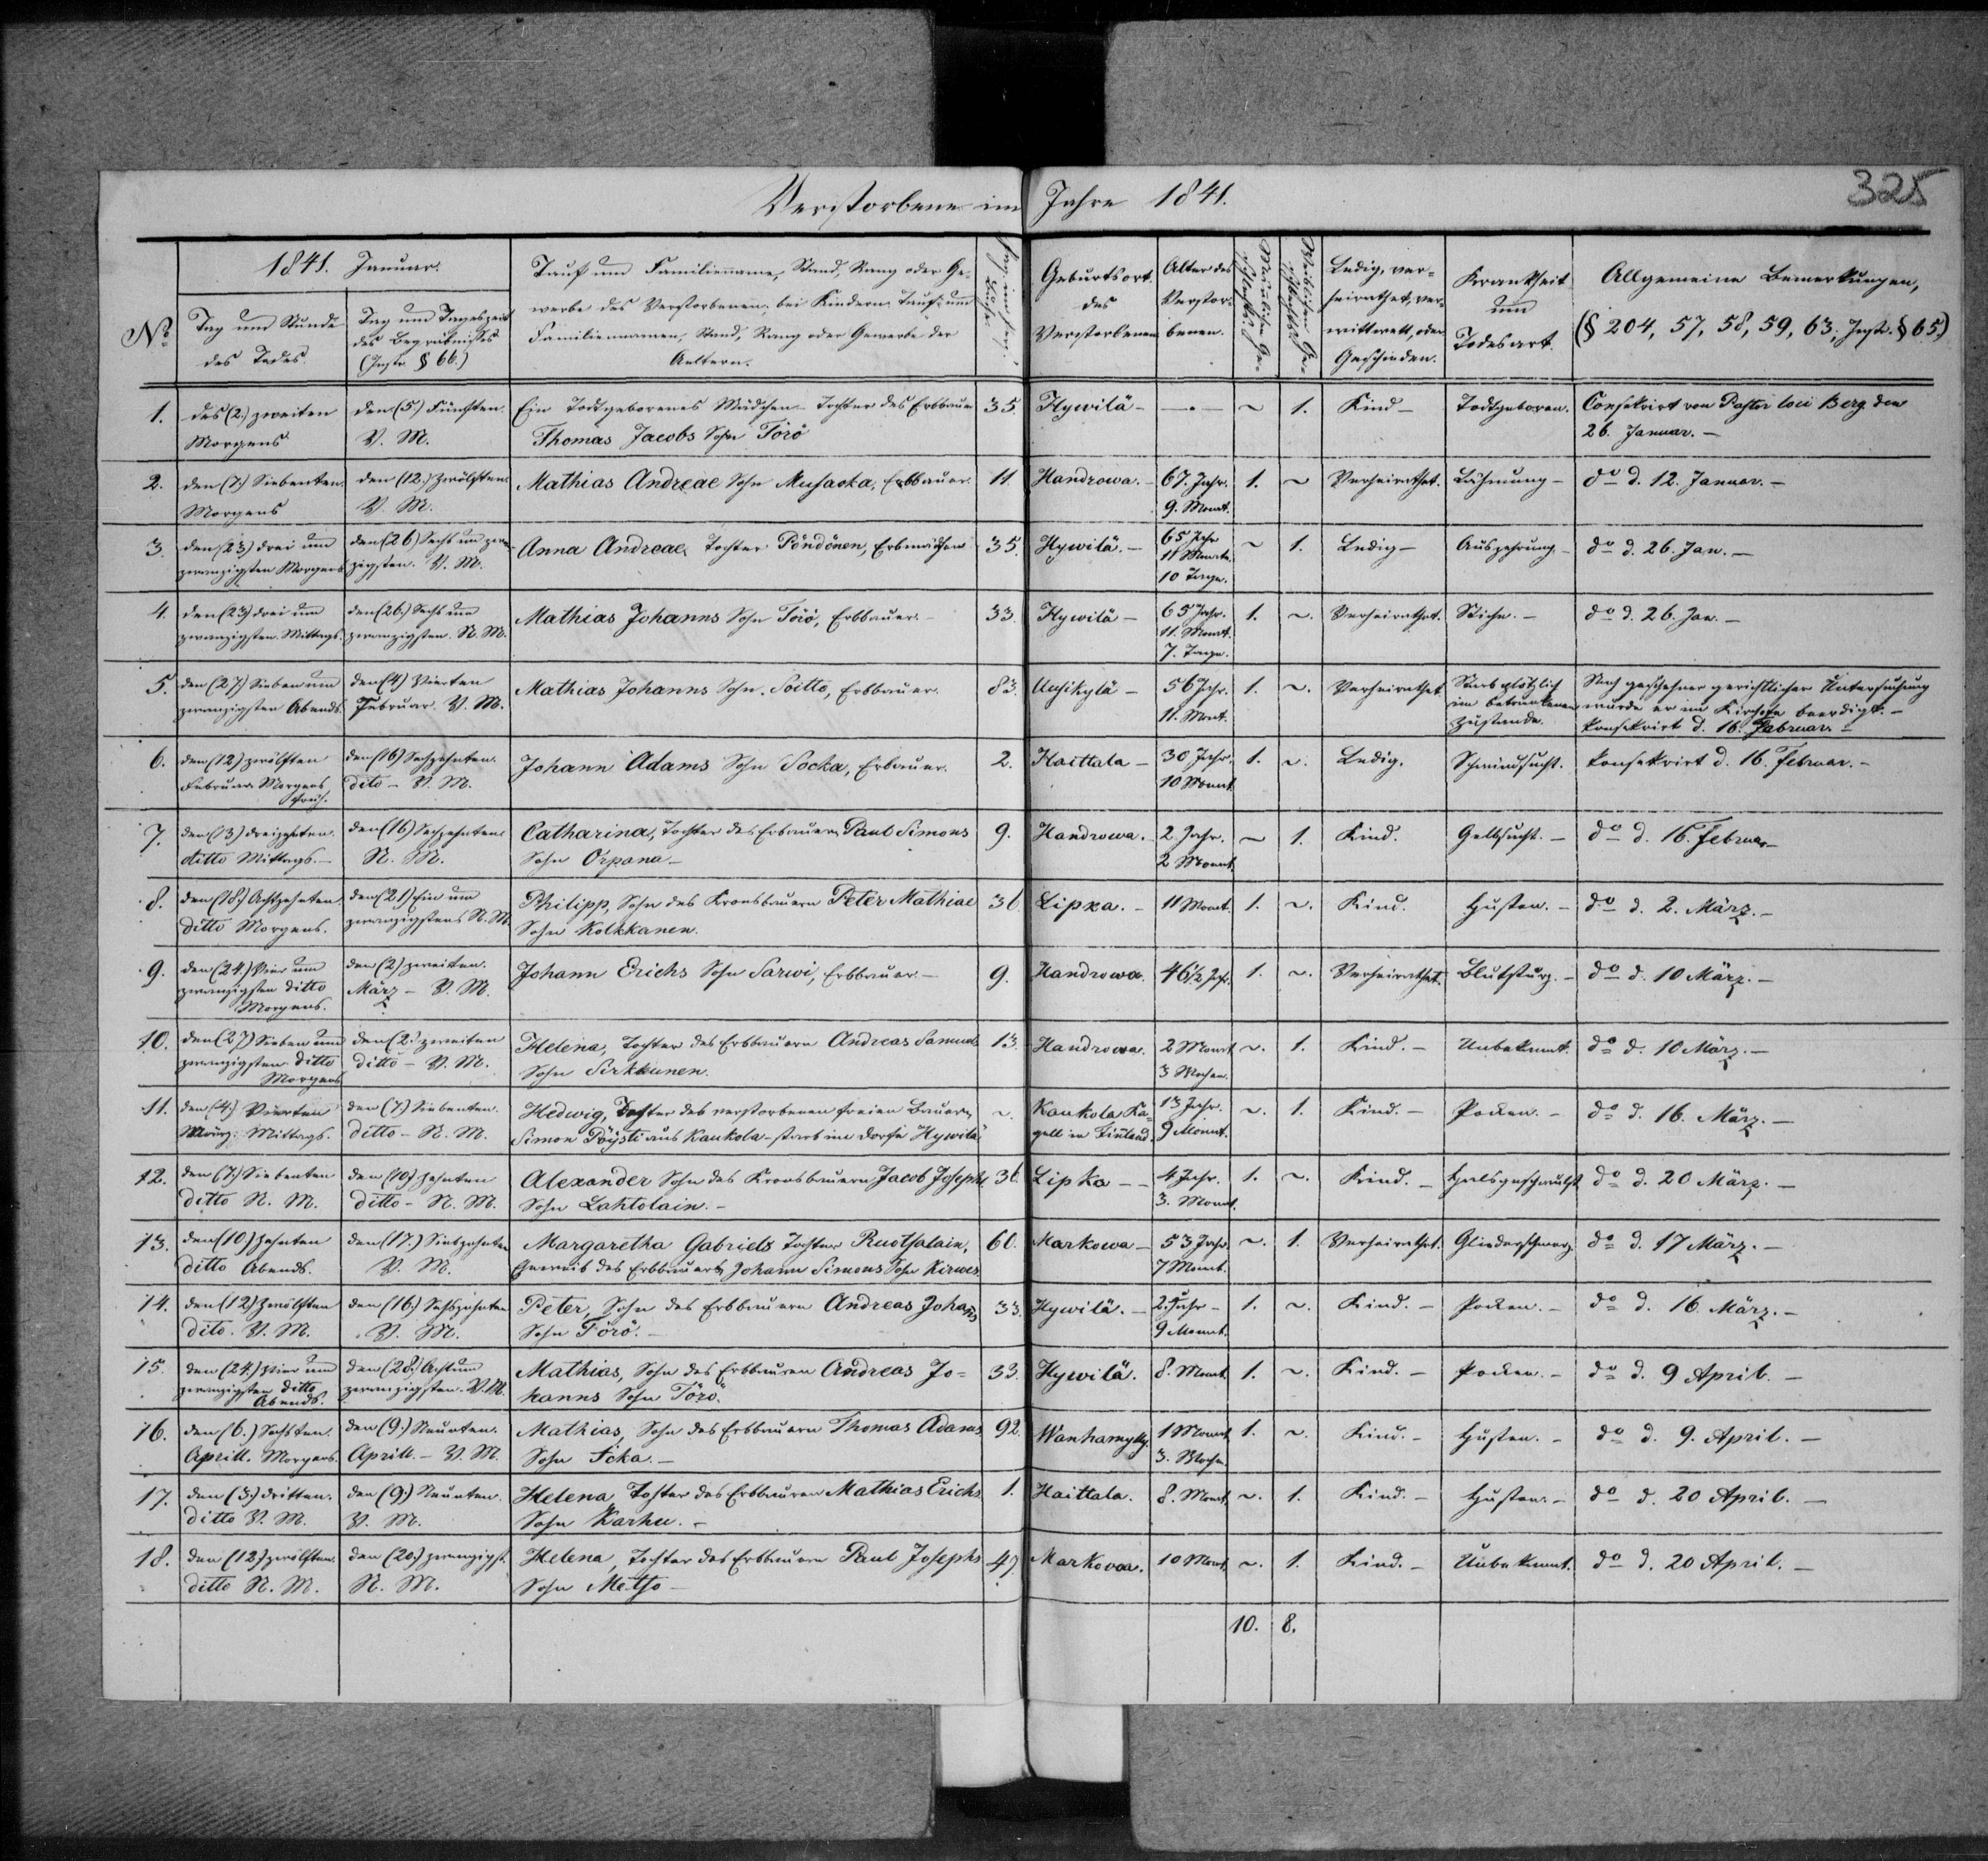 Verstorbene im Jahre 1841.
325
1841. Januar.
№
Tag und Stunde des Todes.
Tag und Tageszeit des Begräbnisses (Instr. § 66.)
Tauf und Familienname, Stand, Rang oder Ge-
werbe des Verstorbenen, bei Kindern Tauf und
Familiennamen, Stand, Rang oder Gewerbe der
Aeltern.
Geburtsort des Verstorbenen
Alter des Verstor- benen.
Männlichen Ge- schlechts
Weiblichen Ge- schlechts
Ledig, ver- heirathet, ver- wittwett, oder Geschieden.
Krankheit und Todesart.
Allgemeine Bemerkungen,
(§ 204, 57, 58, 59, 63; Instr. § 65)
1. des (2.) zweiten den (5.) Fünften. Ein Todtgeborenes Mädchen Tochter des Erbbauer 35. Hywilä - — ~ 1. Kind - Todtgeboren. Consekrirt von Pastor loci Berg den
Morgens V. M. Thomas Jacobs Sohn Törö 26. Januar. -
2. den (7.) Siebenten. den (12.) Zwölften Mathias Andreae Sohn Erbbauer. 11. Handrowa. - 67. Jahr. 1. ~ Verheirathet. Lähmung - do d. 12. Januar. -
Morgens V. M. 9. Monat.
3. den (23) drei und den (26) Sechs und zwan- Anna Andreae Tochter Pöndönen, 35. Hywilä. - 65 Jahr ~ 1. Ledig - Auszehrung - do d. 26. Jan. -
zwanzigsten Morgens zigsten. V. M. 11 Monate.
10 Tage.
4. den (23) drei und den (26.) Sechs und Mathias Johanns Sohn Törö, Erbbauer. - 33. Hywilä - 65 Jahr. 1. ~. Verheirathet. Stiche. - do d. 26. Jan. -
zwanzigsten. Mittags. zwanzigsten. N. M. 11. Monat.
7. Tage.
5. den (27) Sieben und den (4) Vierten Mathias Johanns Sohn. Soitto, Erbbauer. 83. Uusikylä - 56 Jahr. 1. ~. Verheirathet Starb plötzlich Nach geschehner gerichtlicher Untersuchung
zwanzigsten Abends. Februar. V. M. 11. Monat. im betrunkenen wurde er im Kirchhofe beerdigt. -
Zustande. konsekrirt d. 16. Februar. -
6. den (12) zwölften den (16) Sechzehnten. Johann Adams Sohn Socka, Erbauer. 2. Haittala - 30 Jahr. 1. ~. Ledig. Schwindsucht. konsekrirt d. 16. Februar. -
Februar Morgens dito - V. M. 10 Monat
früh.
7. den (13) dreizehnten. den (16) Sechzehnten Catharina, Tochter des Erbauern Paul Simons 9. Handrowa. 2 Jahr. ~ 1. Kind. Gelbsucht. - do d. 16. Februar -
ditto Mittags. - N. M. Sohn Orpana - 2 Monat
8. den (18.) Achtzehnten den (21) Ein und Philipp, Sohn des Kronsbauern Peter Mathiae 36 Lipka. - 11 Monat. 1. ~. Kind. Husten. - do d. 2. März. -
ditto Morgens. zwanzigsten N. M. Sohn Kolkkanen.
9. den (24.) Vier und den (2) zweiten. Johann Erichs Sohn Sarwi, Erbbauer. - 9. Handrowa. 46 1/2 Jahr. 1. ~. Verheirathet. Blutsturz. - do d. 10 März. -
zwanzigsten ditto März - V. M.
Morgens.
10. den (27) Sieben und den (2.) zweiten Helena, Tochter des Erbbauern Andreas Samuel 13. Handrowa. 2 Monat ~. 1. Kind. - Unbekannt. do d. 10 März. -
zwanzigsten ditto ditto - V. M. Sohn Sirkkunen. 3 Wochen.
Morgens
11. den (4.) Vierten den (7.) Siebenten. Hedwig, Tochter des verstorbenen freien Bauern ~. Kaukola Ka- 13 Jahr. ~. 1. Kind. - Pocken. - do d. 16. März. -
März: Mittags. ditto - N. M. Simon Pöysti aus Kaukola - starb im Dorfe Hywilä pell in Finland. 9 Monat.
12. den (7.) Siebenten den (10) Zehnten Alexander Sohn des Kronsbauern Jacob Josephs 36. Lipka - - 4 Jahr. 1. ~. Kind. - Halsgeschwulst do d. 20 März. -
ditto N. M. ditto - N. M. Sohn Lahtolain. - 3. Monat.
13. den (10) Zehnten den (17.) Siebzehnten Margaretha Gabriels Tochter Ruotsalain, 60. Markowa - 53 Jahr ~. 1. Verheirathet. Gliederschmerz do d. 17 März. -
ditto Abends. V. M. Eheweib des Erbbauers Johann Simons Sohn Kirwes. 7 Monat.
14. den (12) Zwölften den (16.) Sechszehnten Peter, Sohn des Erbbauern Andreas Johans 33. Hywilä. - 2. Jahr - 1. ~. Kind. - Pocken. - do d. 16 März. -
dito. V. M. V. M. Sohn Törö. - 9 Monat.
15. den (24.) Vier und den (28.) Acht und Mathias, Sohn des Erbbauren Andreas Jo- 33. Hywilä. 8. Monat 1. ~. Kind. - Pocken. - do d. 9 April. -
zwanzigsten ditto zwanzigsten. V. M. hanns Sohn Törö.
Abends.
16. den (6.) Sechsten. den (9.) Neunten. Mathias, Sohn des Erbbauern Thomas Adams 92. Wanhamylly. 1 Monat 1. ~. Kind. - Husten. - do d. 9. April. -
Aprill. Morgens. Aprill. - V. M. Sohn Scka. - 3. Woche
17. den (3.) dritten. den (9.) Neunten. Helena Tochter des Erbbauren Mathias Erichs 1. Haittala. 8. Monat ~. 1. Kind. - Husten. - do d. 20 April. -
ditto V. M. V. M. Sohn Karhu. -
18. den (12) zwölften. den (20.) zwanzigst. Helena, Tochter des Erbbauern Paul Josephs 47. Markovaa. 10 Monat. ~. 1. Kind. - Unbekannt. do d. 20 April. -
ditto N. M. N. M. Sohn Metso -
10. 8.